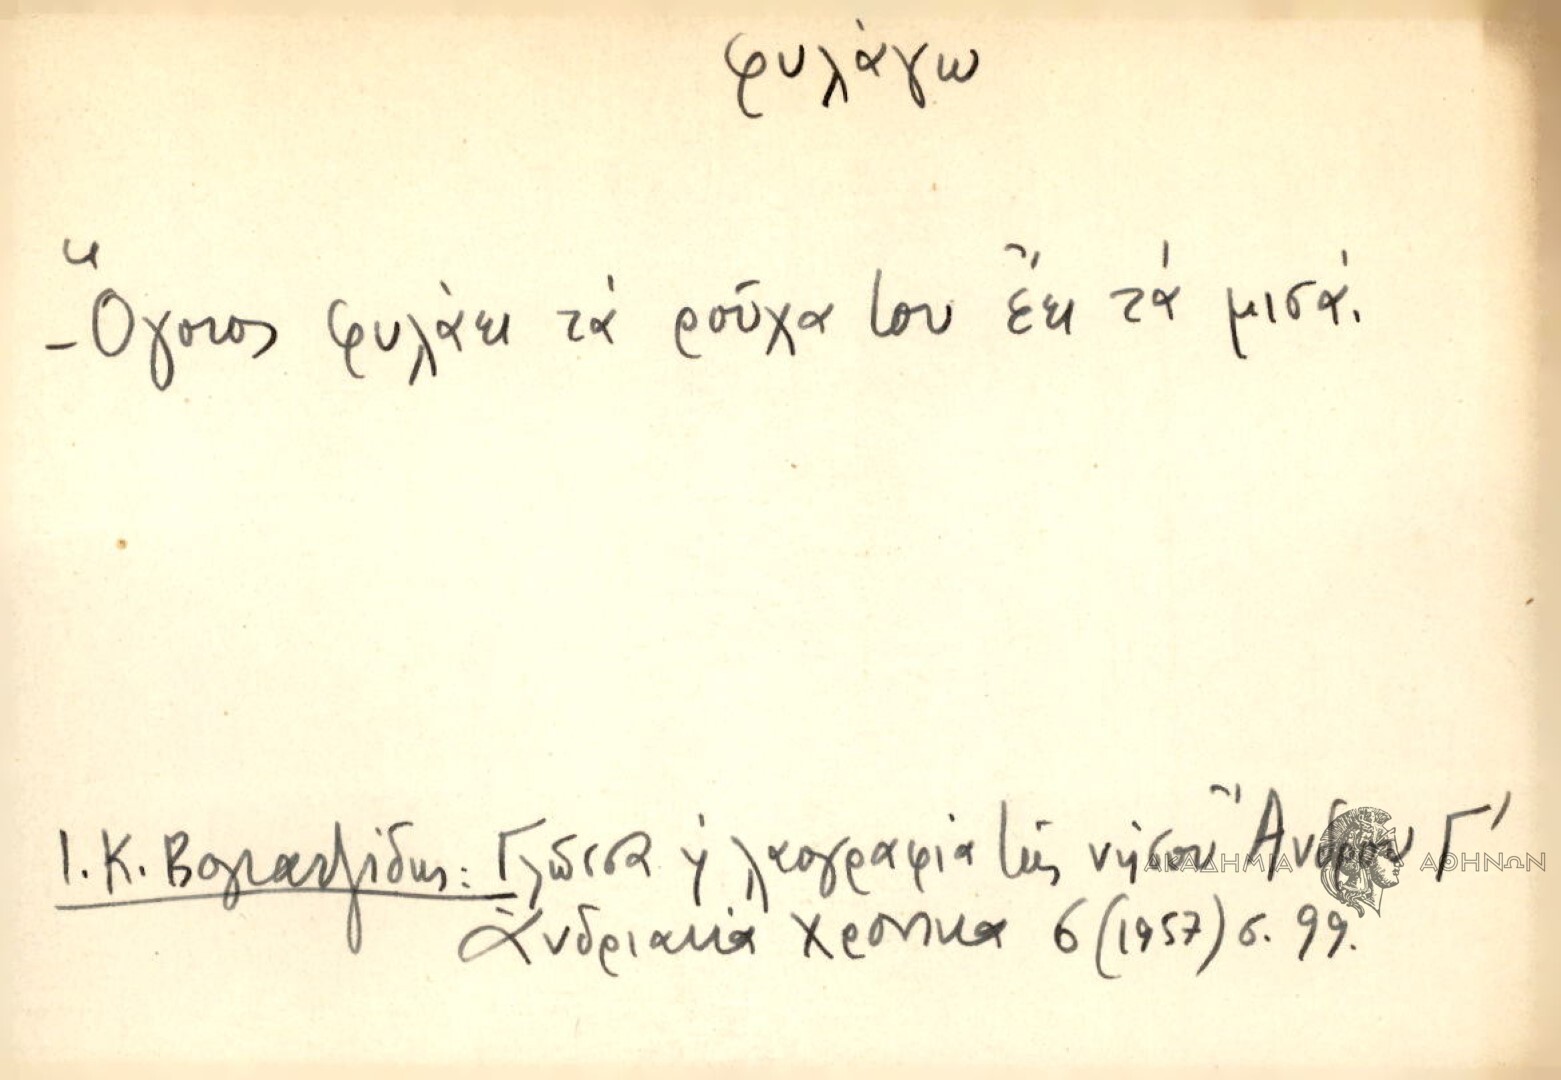 φυλάγω
- Ὅγοιος φυλάει τά ροῦχα του ἔει τά μισά.
Ι. Κ. Βογιατζίδης: Γλῶσσα ἡ λαογραφία τῆς νήσου Ἄνδρου Γ'
Ἀνδριακά Χρονικα 6 (1957) σ. 99.
ΑΚΑΔΗΜΙΑ ΑΘΗΝΩΝ